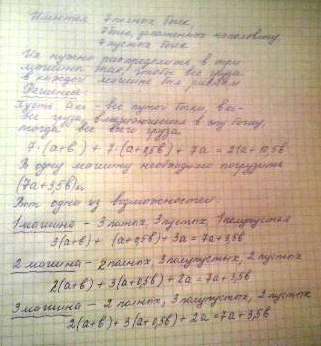 Имеется 7 полных бочек,
7 бочек, заполненных наполовину
7 пустых бочек
Их нужно распределить в три
машины так, чтобы вес груза
в каждой машине был равным
Решение:
Пусть a кг - вес пустой бочки, b кг -
вес груза, в эту бочку,
тогда вес всего груза
7·(a+b) + 7·(a+0,5b) + 7a = 21a + 10,5b
В одну машину необходимо погрузить
(7a+3,5b) кг
Вот одна из возможностей:
1 машина - 3 полных, 3 пустых, 1 полупустая
3(a+b) + (a+0,5b) + 3a = 7a+3,5b
2 машина - 2 полных, 3 полупустых, 2 пустых
2(a+b) + 3(a+0,5b) + 2a = 7a+3,5b
3 машина - 2 полных, 3 полупустых, 2 пустых
2(a+b) + 3(a+0,5b) + 2a = 7a+3,5b